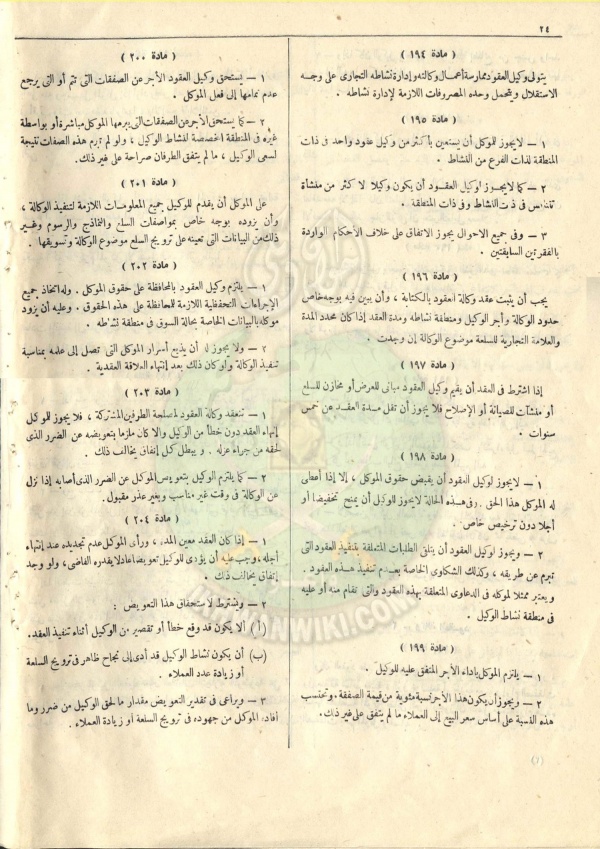 ٢٤
( مادة ١٩٤ )
يتولى وكيل العقود ممارسة أعمال وكالته وإدارة نشاطه التجارى على وجه
الاستقلال ويتحمل وحده المصروفات اللازمة لإدارة نشاطه .
( مادة ١٩٥ )
١ — لايجوز للموكل أن يستعين بأكثر من وكيل عقود واحد فى ذات
المنطقة لذات الفرع من النشاط .
٢ — كما لايجوز لوكيل العقود أن يكون وكيلا لأكثر من منشأة
تتنافس فى ذت النشاط وفى ذات المنطقة .
٣ — وفى جميع الاحوال يجوز الاتفاق على خلاف الأحكام الواردة
بالفقرتين السابقتين .
( مادة ١٩٦ )
يجب أن يثبت عقد وكالة العقود بالكتابة ، وأن يبين فيه بوجه خاص
حدود الوكالة وأجر الوكيل ومنطقة نشاطه ومدة العقد إذا كان محدد المدة
والعلامة التجارية للسلعة موضوع الوكالة إن وجدت .
( مادة ١٩٧ )
إذا اشترط فى العقد أن يقيم وكيل العقود مبانى للعرض أو مخازن للسلع
أو منشآت للصيانة أو الإصلاح فلا يجوز أن تقل مدة العقد عن خمس
سنوات .
( مادة ١٩٨ )
١ — لايجوز لوكيل العقود أن يقبض حقوق الموكل ، إلا إذا أعطى
له الموكل هذا الحق . وفى هذه الحالة لايجوز للوكيل أن يمنح تخفيضا أو
أجلا دون ترخيص خاص .
٢ — ويجوز لوكيل العقود أن يتلقى الطلبات المتعلقة بتنفيذ العقود التى
تبرم عن طريقه ، وكذلك الشكاوى الخاصة بعدم تنفيذ هذه العقود .
ويعتبر ممثلا لموكله فى الدعاوى المتعلقة بهذه العقود والتى تقام منه أو عليه
فى منطقة نشاط الوكيل .
( مادة ١٩٩ )
١ — يلتزم الموكل بأداء الأجر المتفق عليه للوكيل .
٢ — ويجوز أن يكون هذا الأجر نسبة مئوية من قيمة الصفقة . وتحتسب
هذه النسبة على أساس سعر البيع إلى العملاء ما لم يتفق على غير ذلك .
( مادة ٢٠٠ )
١ — يستحق وكيل العقود الأجر عن الصفقات التى تتم أو التى يرجع
عدم تمامها إلى فعل الموكل .
٢ — كما يستحق الأجر عن الصفقات التى يبرمها الموكل مباشرة أو بواسطة
غيره فى المنطقة المخصصة لنشاط الوكيل ، ولو لم تبرم هذه الصفقات نتيجة
لسعى الوكيل ، ما لم يتفق الطرفان صراحة على غير ذلك .
( مادة ٢٠١ )
على الموكل أن يقدم للوكيل جميع المعلومات اللازمة لتنفيذ الوكالة ،
وأن يزوده بوجه خاص بمواصفات السلع والنماذج والرسوم وغير
ذلك من البيانات التى تعينه على ترويج السلع موضوع الوكالة وتسويقها .
( مادة ٢٠٢ )
١ — يلتزم وكيل العقود بالمحافظة على حقوق الموكل . وله اتخاذ جميع
الإجراءات التحفظية اللازمة للمحافظة على هذه الحقوق . وعليه أن يزود
موكله بالبيانات الخاصة بحالة السوق فى منطقة نشطه .
٢ — ولا يجوز له أن يذيع أسرار الموكل التى تصل إلى علمه بمناسبة
تنفيذ الوكالة ولو كان ذلك بعد إنتهاء العلاقة العقدية .
( مادة ٢٠٣ )
١ — تنعقد وكالة العقود لمصلحة الطرفين المشتركة ، فلا يجوز للموكل
إنهاء العقد دون خطأ من الوكيل والا كان ملزما بتعويضه عن الضرر الذى
لحقه من جراء عزله . ويبطل كل إنفاق يخالف ذلك .
٢ — كما يلتزم الوكيل بتعويض الموكل عن الضرر الذى أصابه إذا نزل
عن الوكالة فى وقت غير مناسب وبغير عذر مقبول .
( مادة ٢٠٤ )
١ — إذا كان العقد معين المدة ، ورأى الموكل عدم تجديده عند إنتهاء
أجله ، وجب عليه أن يؤدى للوكيل تعويضا عادلا يقدره القاضى ، ولو وجد
إتفاق يخالف ذلك .
٢ — ويشترط لاستحقاق هذا التعويض :
( أ ) ألا يكون قد وقع خطأ أو تقصير من الوكيل أثناء تنفيذ العقد .
(ب) أن يكون نشاط الوكيل قد أدى إلى نجاح ظاهر فى ترويج السلعة
أو زيادة عدد العملاء .
٣ — ويراعى فى تقدير التعويض مقدار ما لحق الوكيل من ضرر وما
أفاده الموكل من جهوده فى ترويج السلعة أو زيادة العملاء .
(٦)